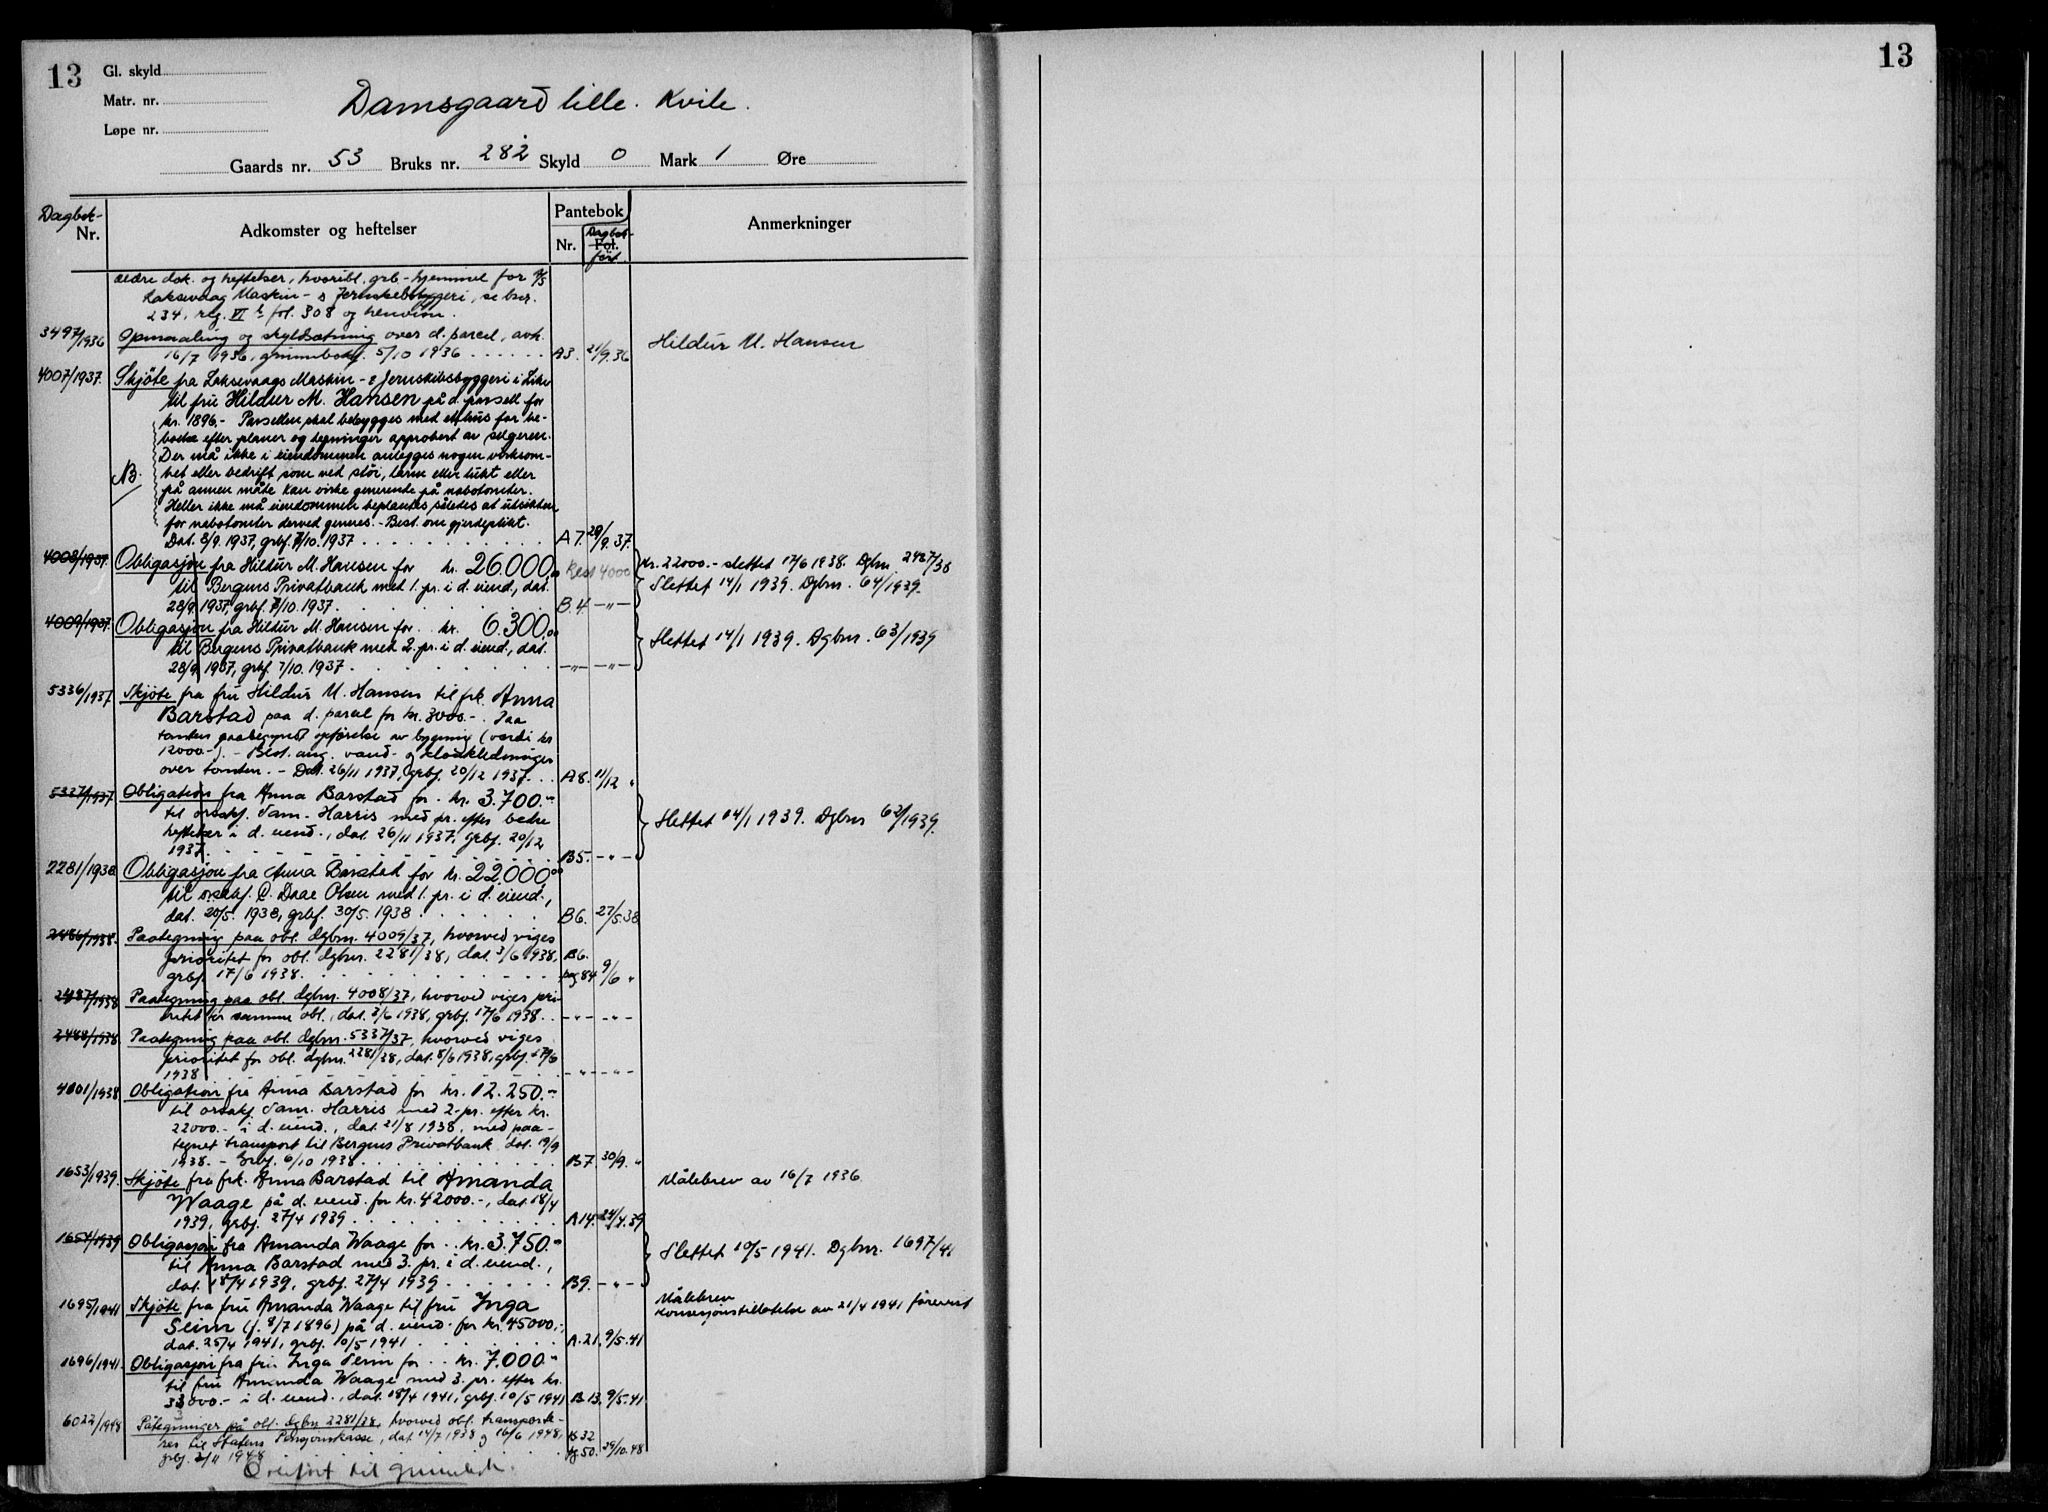 13
Gl. skyld
Matr. nr.
Løpe nr.
Damsgaard lille. Kvile.
Gaards nr. 53 Bruks nr. 282 Skyld 0 Mark 1 Øre
Dagbok-
Nr.
Adkomster og heftelser
Pantebok
Nr.
Dagbok-
Fol.
ført
Anmerkninger
ældre dok. og heftelser, hvoribl. grb-hjemmel for A/S
Laksevaag Maskin- & Jernskibsbyggeri, se bnr.
234, reg. VI fol. 308 og henviser.
3497/1936 Opmaaling og skyldsætning over d. parcel, avh.
16/7 1936, grunnbokf. 5/10 1936 A3. 21/9.36 Hildur M. Hansen
4007/1937. Skjöte fra Laksevaags Maskin- & Jernskibsbyggeri i Likv.
til fru Hildur M. Hansen på d. parsell for
kr. 1896.- Parsellen skal bebygges med ett hus for be-
boelse efter planer og tegninger approbert av selgeren.
Der må ikke i eiendommen anlegges nogen virksom-
NB. het eller bedrift som ved støi, larm eller lukt eller
på annen måte kan virke generende på nabotomter.
Heller ikke må eiendommen beplantes således at utsikten
for nabotomter derved generes. - Best. om gjerdeplikt.
Dat. 8/9. 1937, grbf. 7/10. 1937 A7. 29/9.37.
4008/1937. Obligasjon fra Hildur M. Hansen for kr. 26.000,00 Rest 4000 Kr. 22000.- slettet 17/6 1938. Dgbnr. 2487/38
til Bergens Privatbank med 1. pr. i d. eiend., dat. Slettet 14/1 1939. Dgbnr. 64/1939.
28/9. 1937, grbf. 7/10. 1937 B.4. —"—
4009/1937. Obligasjon fra Hildur M. Hansen for kr. 6.300,00
til Bergens Privatbank med 2. pr. i d. eiend., dat. Slettet 14/1 1939. Dgbnr. 63/1939
28/9 1937, grbf. 7/10. 1937 —"— —"—
5336/1937 Skjøte fra fru Hildur M. Hansen til frk. Anna
Barstad paa d. parcel for kr. 3000.-. Paa
tomten paabegynt opførelse av bygning (verdi kr
12000.-). - Best. ang. vand- og kloakledninger
over tomten. - Dat. 26/11 1937, grbf. 20/12 1937. A8. 11/12 "
5337/1937 Obligation fra Anna Barstad for kr. 3.700.-
til orsakf. Sam. Harris med pr. efter bedre
heftelser i d. eiend., dat. 26/11 1937, grbf. 20/12 Slettet 14/1 1939. Dgbnr 62/1939.
1937. B5. —"—
2281/1938. Obligasjon fra Anna Barstad for kr. 22.000,00
til orsakf. C. Daae Olsen med 1. pr. i d. eiend.,
dat. 20/5. 1938, grbf. 30/5. 1938 B6. 27/5.38
2486/1938. Paategning paa obl. dgbnr. 4009/37, hvorved viges
prioritet for obl. dgbnr. 2281/38, dat. 3/6 1938, B6.
grbf. 17/6 1938. pag 84 9/6 "
2487/1938 Paategning paa obl. dgbnr. 4008/37, hvorved viges pri-
oritet for samme obl., dat. 3/6 1938, grbf. 17/6 1938. —"— —"—
2488/1938. Paategning paa obl. dgbnr. 5337/37, hvorved viges
prioritet for obl. dgbnr. 2281/38, dat. 8/6 1938, grbf. 17/6
1938 —"— —"—
4001/1938 Obligation fra Anna Barstad for kr. 12.250.-
til orsakf. Sam. Harris med 2. pr. efter kr.
22000.- i d. eiend., dat. 21/8 1938, med paa-
tegnet transport til Bergens Privatbank dat. 19/9
1938. - Grbf. 6/10 1938 B7. 30/9. "
1653/1939. Skjöte fra frk. Anna Barstad til Amanda Målebrev av 16/7 1936
Waage på d. eiend. for kr. 42000.-, dat. 18/4
1939, grbf. 27/4 1939 A14. 24/4.39
1654/1939 Obligasjon fra Amanda Waage for kr. 3.750.- Slettet 10/5 1941. Dgbnr. 1697/41
til Anna Barstad med 3. pr. i d. eiend.,
dat. 18/4 1939, grbf. 27/4 1939 B9. —"—
1695/1941 Skjöte fra fru Amanda Waage til fru Inga Målebrev
Konsesjonstillatelse av 21/4 1941 forevist
Seim (f. 8/7 1896) på d. eiend. for kr. 45000.-,
dat. 25/4 1941, grbf. 10/5 1941 A.21. 9/5.41
1696/1941. Obligasjon fra fru Inga Seim for kr. 7.000.-
til fru Amanda Waage med 3. pr. efter kr.
33000.- i d. eiend., dat. 18/4 1941, grbf. 10/5 1941 B13. 9/5.41
6022/1948 Påtegninger på obl. dgbnr 2281/38, hvorved obl. transporte-
res til Statens Pensjonskasse, dat. 14/7 1938 og 16/6 1948, B32
grbf. 2/11 1948 pg 50. 29/10.48
Overført til grunnbok.
13